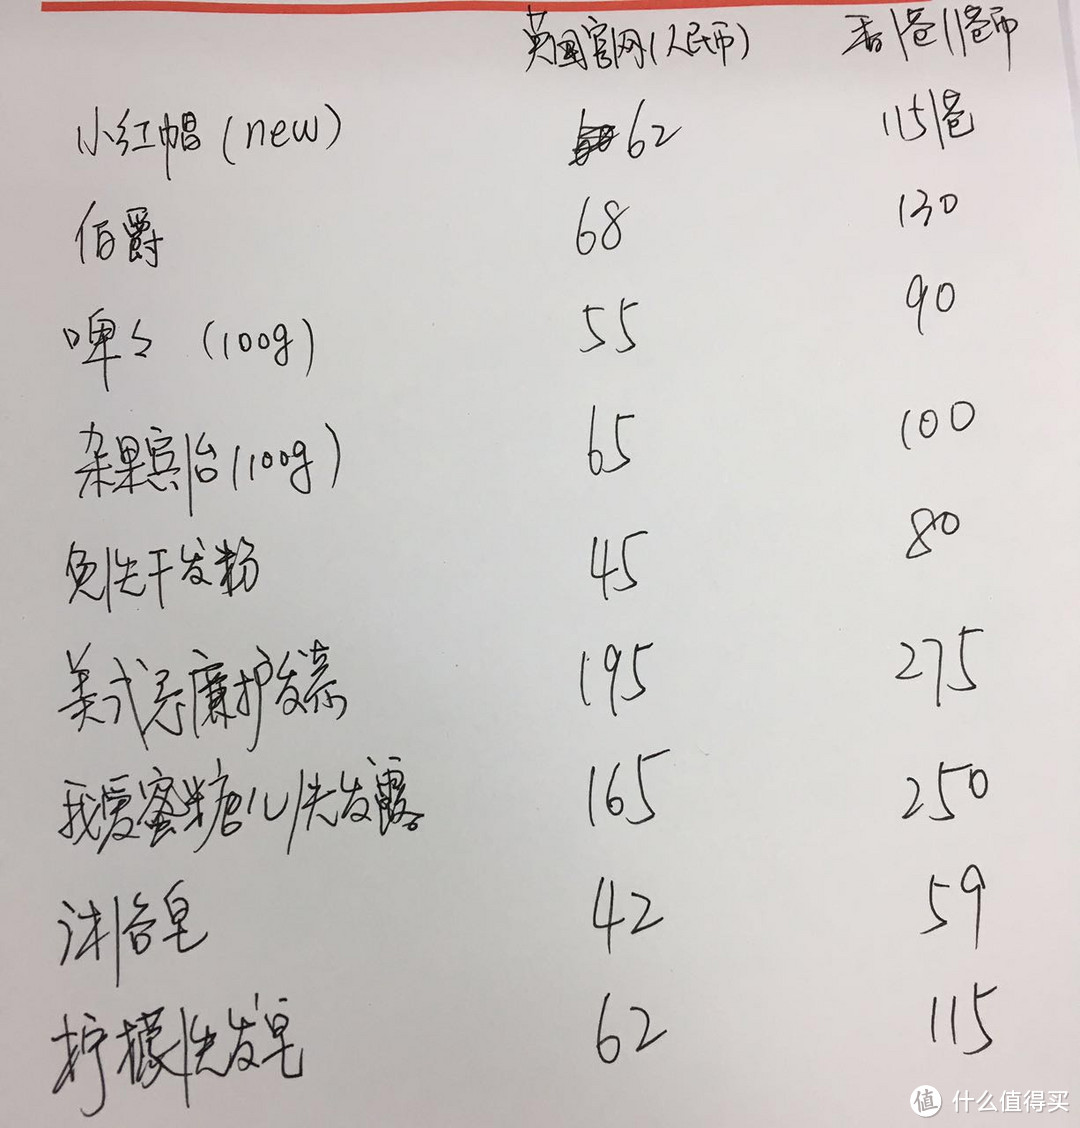 英国官网(人民币) 香港(港币)
小红帽(new) 62 115港
伯爵 68 130
啤々 (100g) 55 90
杂果宾治(100g) 65 100
免洗干发粉 45 80
美式忌廉护发素 195 275
我爱蜜糖儿洗发露 165 250
沐浴皂 42 59
柠檬洗发皂 62 115
值 什么值得买